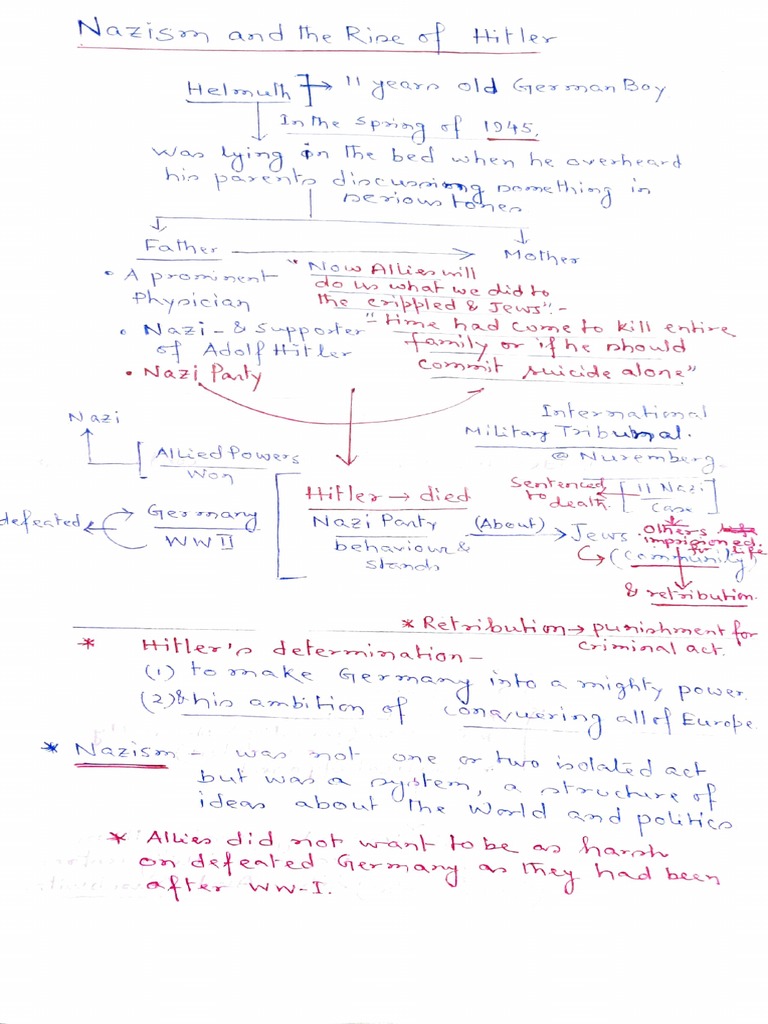 Nazism and the Rise of Hitler
Helmuth → 11 years old German Boy
In the spring of 1945.
was lying in the bed when he overheard
his parents discussing something in
serious tones
Father → Mother
• A prominent
Physician
• Nazi - & supporter
of Adolf Hitler
• Nazi Party
"Now Allies will
do us what we did to
the crippled & Jews".-
"time had come to kill entire
family or if he should
commit suicide alone"
Nazi
Allied Powers
Won
defeated ← Germany
WW II
Hitler → died
Nazi Party
behaviour &
stands
(About) → Jews
(community)
International
Military Tribunal.
@ Nuremberg.
11 Nazi
Case
Sentenced
to death.
Others
imprisoned
for life
& retribution.
* Retribution → punishment for
criminal act.
* Hitler's determination -
(1) to make Germany into a mighty power.
(2) & his ambition of conquering all of Europe.
* Nazism - was not one or two isolated act
but was a system, a structure of
ideas about the world and politics
* Allies did not want to be as harsh
on defeated Germany as they had been
after WW-I.